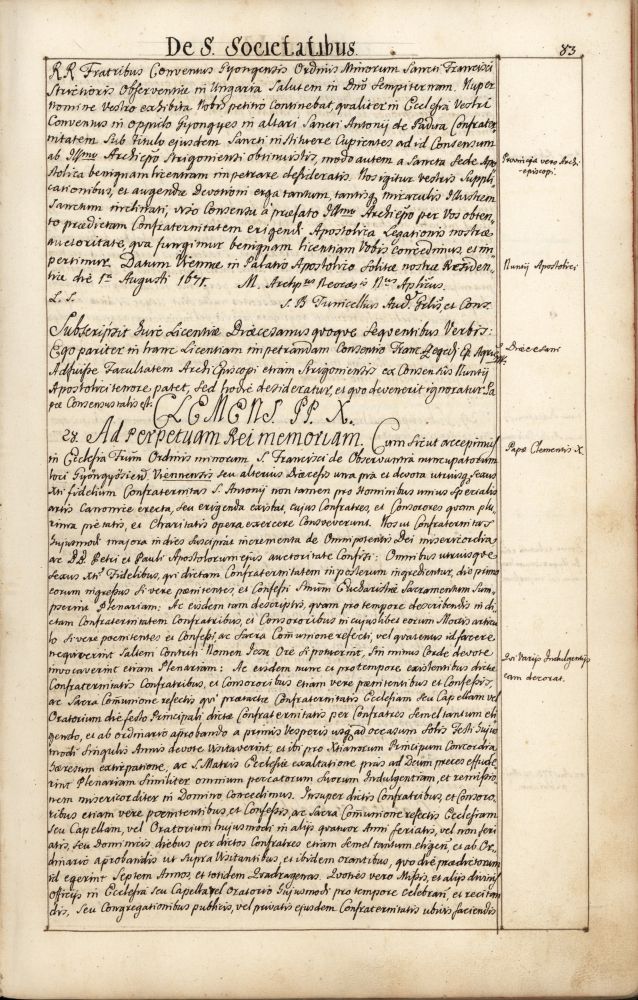 De S. Societatibus. 83
R.R Fratribus Conventus Gyöngensis Ordinis Minorum Sancti Francisci
Strictioris Observantiæ in Ungaria Salutem in Dno Sempiternam. Nuper
nomine Vestro exhibita Nobis petitio continebat, qualiter in Ecclesia Vestri
Conventus in oppido Gyongyes in altari Sancti Antonij de Padua Confrater
nitatem Sub titulo ejusdem Sancti instituere Cupientes ad id Consensum
ab Illmo Archiepo Strigoniensi obtinuistis, modo autem a Sancta Sede Apo
stolica benignam licentiam impetrare desideratis. Nos igitur vestris Suppli
cationibus, et augendæ Devotioni erga tantum, tantisq miraculis Illustrem
Sanctum inclinati, viso Consensu à præfato Illmo Archiepo per Vos obten
to prædictam Confraternitatem erigendi Apostolica Legationis nostræ
auctoritate, qua fungimur benignam licentiam Vobis concedimus, et im
pertimur. Datum Viennæ in Palatio Apostolico Solitæ nostræ Residen
tiæ die 1a Augusti 1671. M. Archpus Neocæs Nus Aplicus.
L. S. S. B Tunicellus Aud. et Conz.
Subscripsit huic Licentiæ Diœcesanus quoque Sequentibus Verbis:
Ego pariter in hanc Licentiam impetrandam Consentio Franc. Szegedi Ep. Agrien
Adfuisse Facultatem ArchiEpiscopi etiam Strigoniensis ex Consensûs Nuntij
Apostolici tenore patet, Sed hodie desideratur, et quo devenerit ignoratur. Pa
pæ Consensus talis est. CLEMENS. PP. X.
28. Ad Perpetuam Rei memoriam. Cum Sicut accepimus
in Ecclesia Ordinis minorum S. Francisci de Observantia nuncupatorum
loci Gyöngyösien Viennensis seu alterius Diæcesis una pia et devota utriusq Sexus
Xti fidelium Confraternitas S. Antonij non tamen pro Hominibus unius Specialis
artis Canonice erecta, seu erigenda existat, cujus Confratres, et Consorores quam plu
rima pietatis, et Charitatis opera exercere Consueverunt. Nos ut Confraternitas
hujusmodi majora in dies Suscipiat incrementa de Omnipotentis Dei misericordia,
ac B.B. Petri et Pauli Apostolorum ejus auctoritate Confisi: Omnibus utriusque
Sexus Xti Fidelibus, qui dictam Confraternitatem in posterum ingredientur, die primo
eorum ingressus Si vere pœnitentes, et Confessi Smum Eucharistiæ Sacramentum Sum
pserint Plenariam: Ac eisdem tam descriptis, quam pro tempore describendis in di
ctam Confraternitatem Confratribus, et Consororibus in cujuslibet eorum Mortis articu
lo Si vere pœnitentes et Confessi, ac Sacra Comunione refecti, vel quatenus id facere
nequiverint Saltem Contriti Nomen Jesu Ore Si potuerint, Sin minus Corde devote
invocaverint etiam Plenariam: Ac eisdem nunc et pro tempore existentibus dictæ
Confraternitatis Confratribus, et Consororibus etiam vere pœnitentibus et Confessis,
ac Sacra Comunione refectis qui præfatæ Confraternitatis Ecclesiam Seu Capellam vel
Oratorium die festo Principali dictæ Confraternitatis per Confratres Semel tantum eli
gendo, et ab ordinario aprobando a primis Vesperis usq ad occasum Solis Festi hujus
modi Singulis Annis devote Visitaverint, et ibi pro Xtianorum Principum Concordia,
hæresum extirpatione, ac S. Matris Ecclesiæ exaltatione pias ad Deum preces effude
rint Plenariam Similiter omnium peccatorum Suorum Indulgentiam, et remissio
nem misericorditer in Domino Concedimus. Insuper dictis Confratribus, et Consoro
ribus etiam vere pœnitentibus, et Confessis, ac Sacra Comunione refectis Ecclesiam
Seu Capellam, vel Oratorium hujusmodi in alijs quatuor Anni feriatis, vel non feri
atis, seu Dominicis diebus per dictos Confratres etiam Semel tantum eligen, et ab Or
dinario aprobandis ut Supra Visitantibus, et ibidem orantibus, quo die prædictorum
id egerint Septem Annos, et totidem Quadragenas. Quoties vero Missis, et alijs divinis
officijs in Ecclesia seu Capella vel Oratorio hujusmodi pro tempore celebran, et recitan
dis, Seu Congregationibus publicis, vel privatis ejusdem Confraternitatis ubivis faciendis
Provinciæ vero Archi-
episcopi.
Nuntij Apostolici
Diæcesani
Papæ Clementis X.
Isi Varijs Indulgentijs
eam decorat.